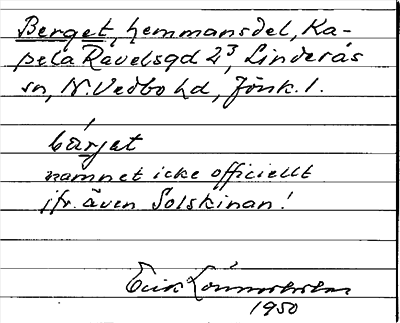 Berget, hemmansdel, Ka-
pela Ravelsgd 2³, Linderås
sn, N. Vedbo hd, Jönk. l.
bárjet
namnet icke officiellt
jfr. även Solskinan!
Erik
1950